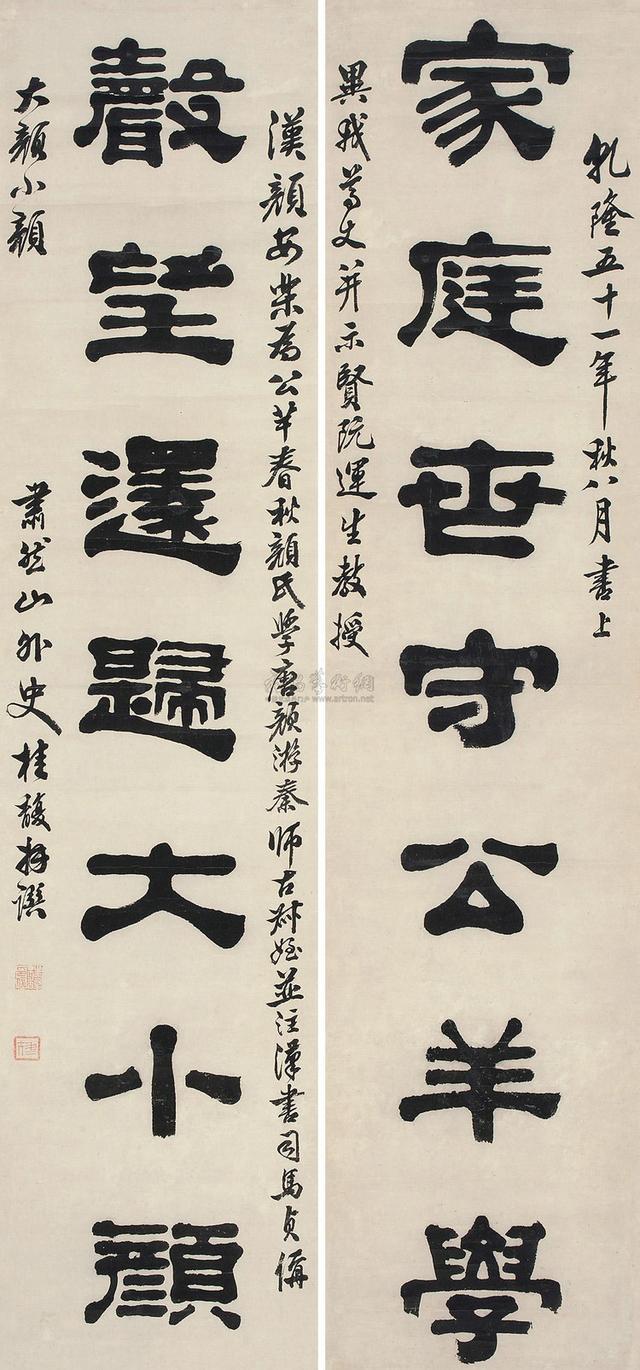 乹隆五十一年秋八月書上
家庭世守公羊學
異我尊丈并示賢阮運生教授
漢顏安樂為公羊春秋顏氏學唐顏游秦師古叔姪並注漢書司馬貞偁
聲望還歸大小顏
大顏小顏
肅然山外史桂馥拜譔
www.artron.net